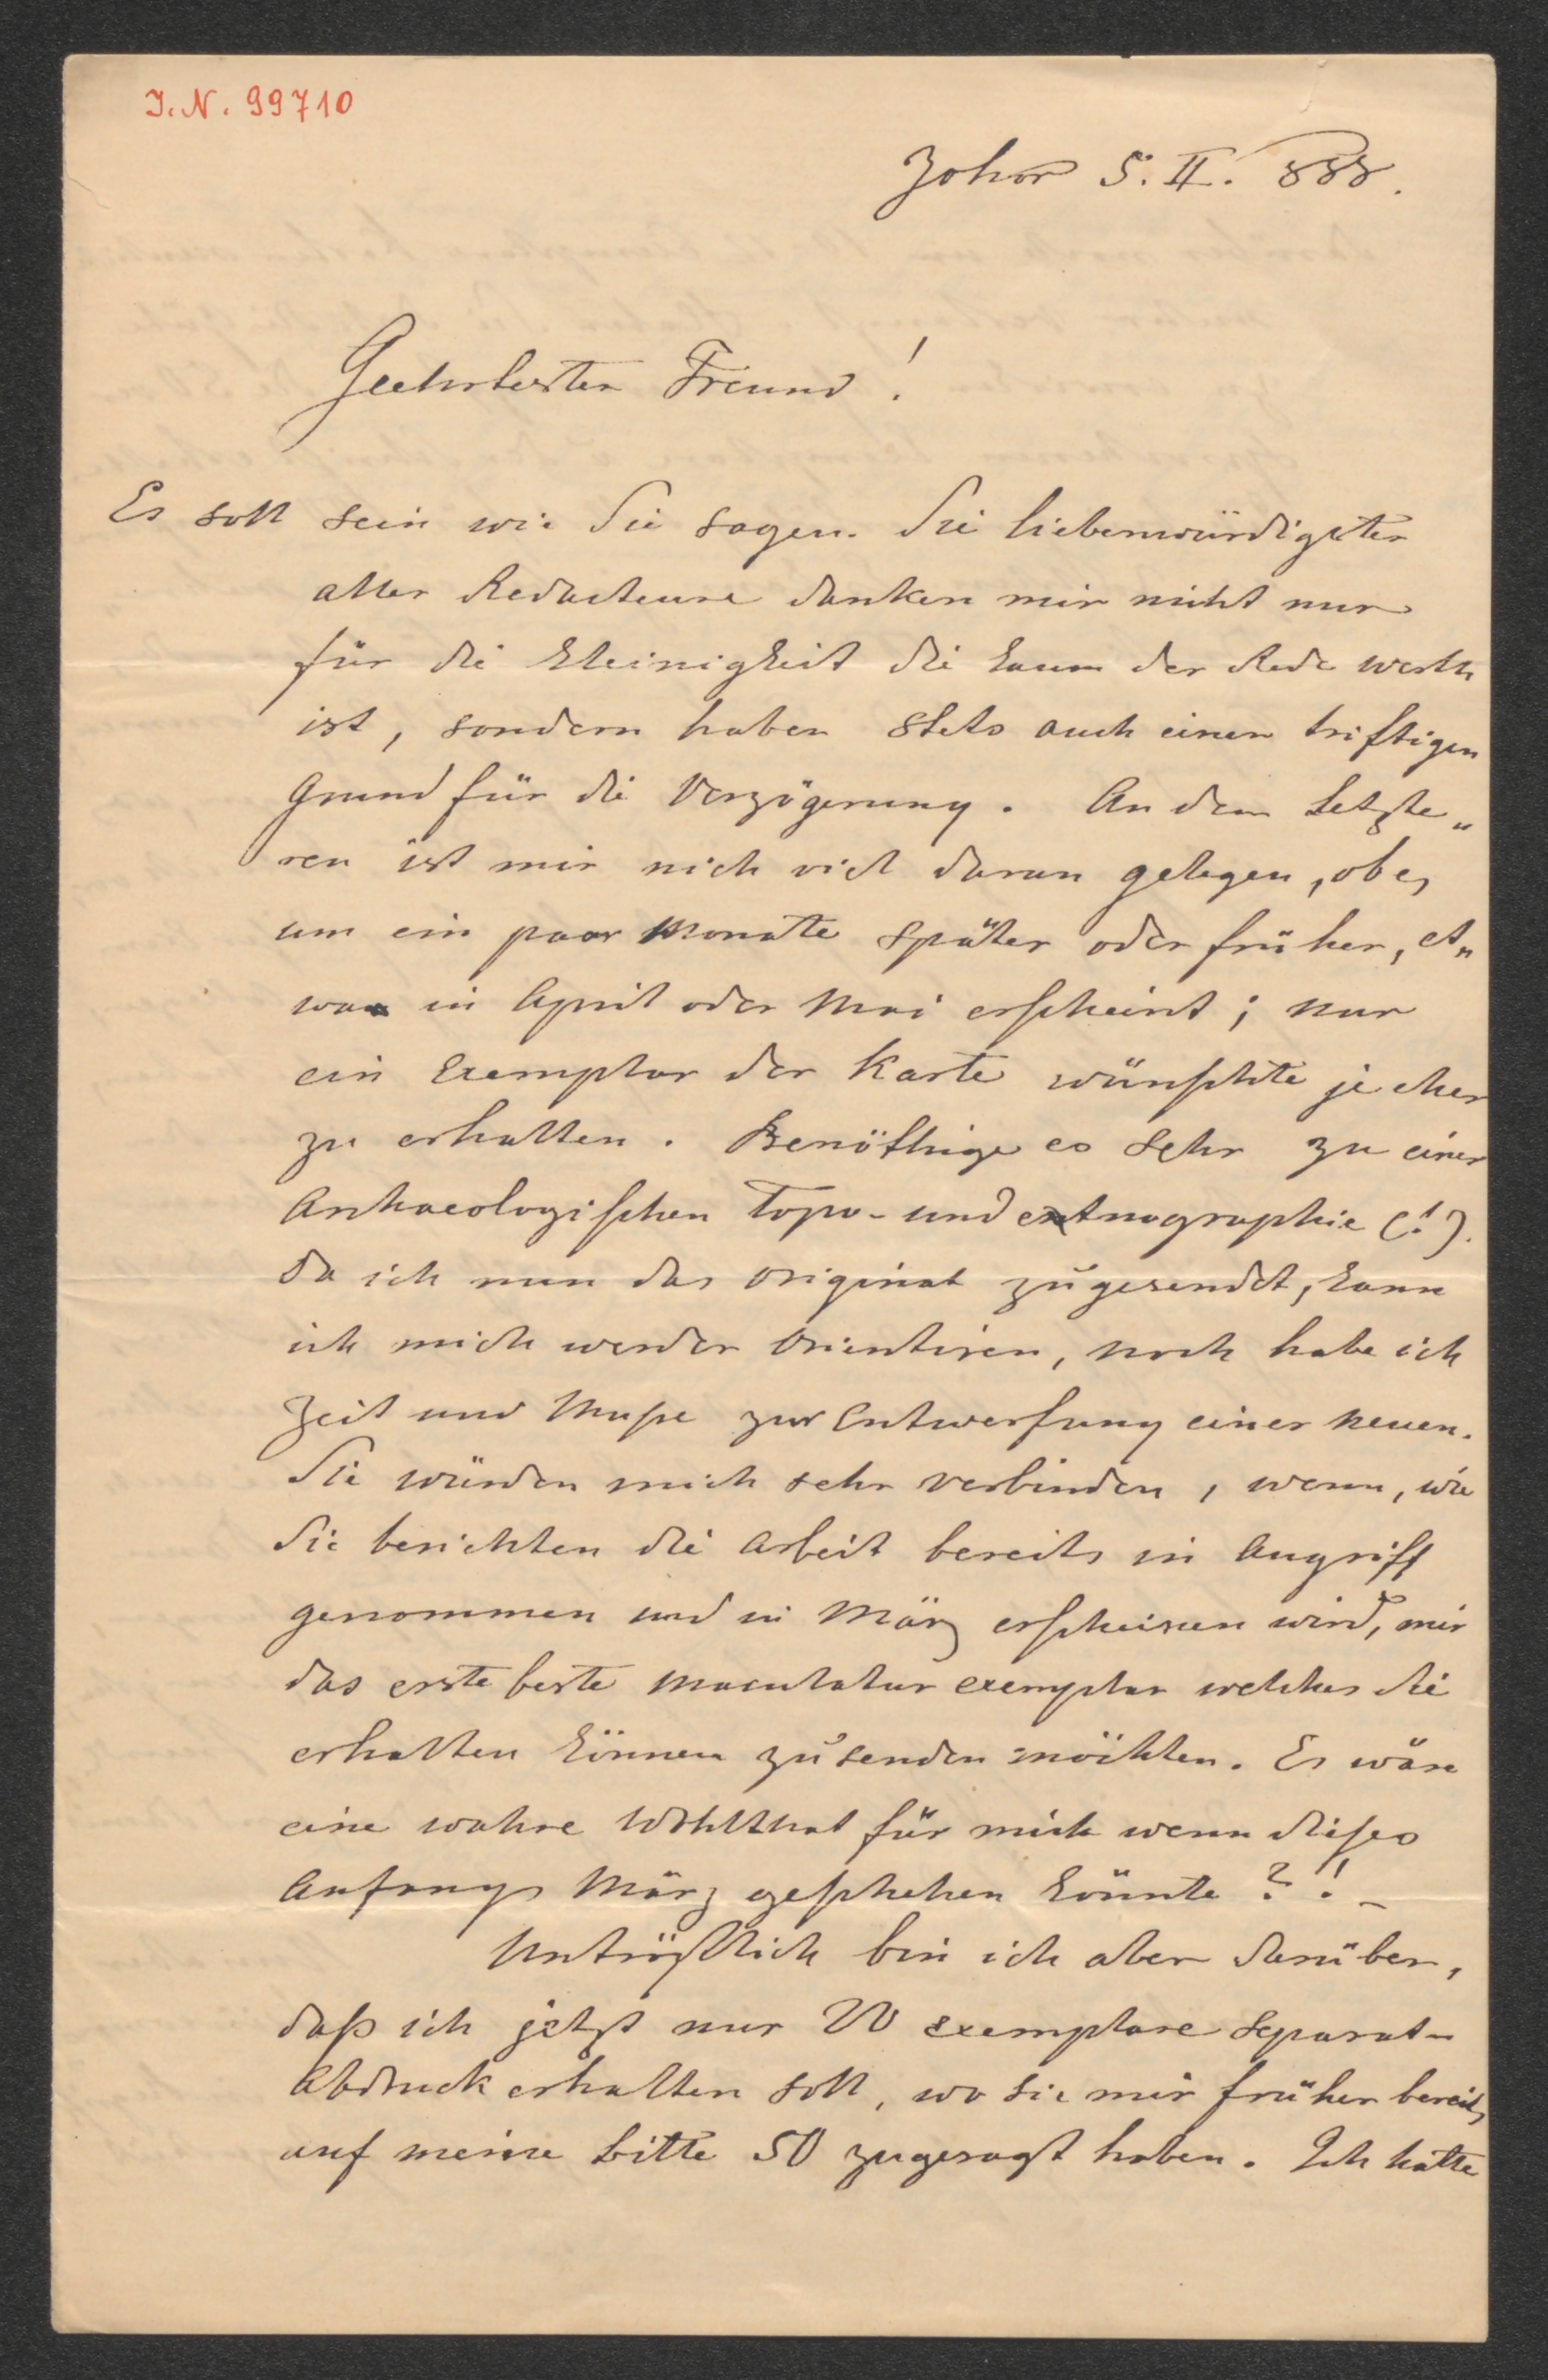 I. N. 99710
Johor 5. II. 888.
Geehrtester Freund!
Es soll sein wie Sie sagen. Sie liebenswürdigster
aller Redacteure danken mir nicht nur
für die Kleinigkeit die kaum der Rede werth
ist, sondern haben stets auch einen triftigen
Grund für die Verzögerung. An dem Letzte„
ren ist mir nich viel daran gelegen, ob es
um ein paar Monate später oder früher, et„
wa in April oder Mai erscheint; nur
ein Exemplar der Karte wünschte je eher
zu erhalten. Benöthige es sehr zu einer
Archaeologischen Topo- und etnographie (!).
Da ich nun das Original zugesendet, kann
ich mich weder orientiren, noch habe ich
Zeit und Musse zur Entwerfung einer neuen.
Sie würden mich sehr verbinden, wenn, wie
Sie berichten die Arbeit bereits in Angriff
genommen und in März erscheinen wird, mir
das erste beste Maculatur exemplar welches Sie
erhalten können zusenden möchten. Es wäre
eine wahre Wohlthat für mich wenn dieses
Anfangs März geschehen könnte?! –
Untröstlich bin ich aber darüber,
daß ich jetzt nur 20 exemplare Separat-
Abdruck erhalten soll, wo sie mir früher bereits
auf meine Bitte 50 zugesagt haben. Ich hätte